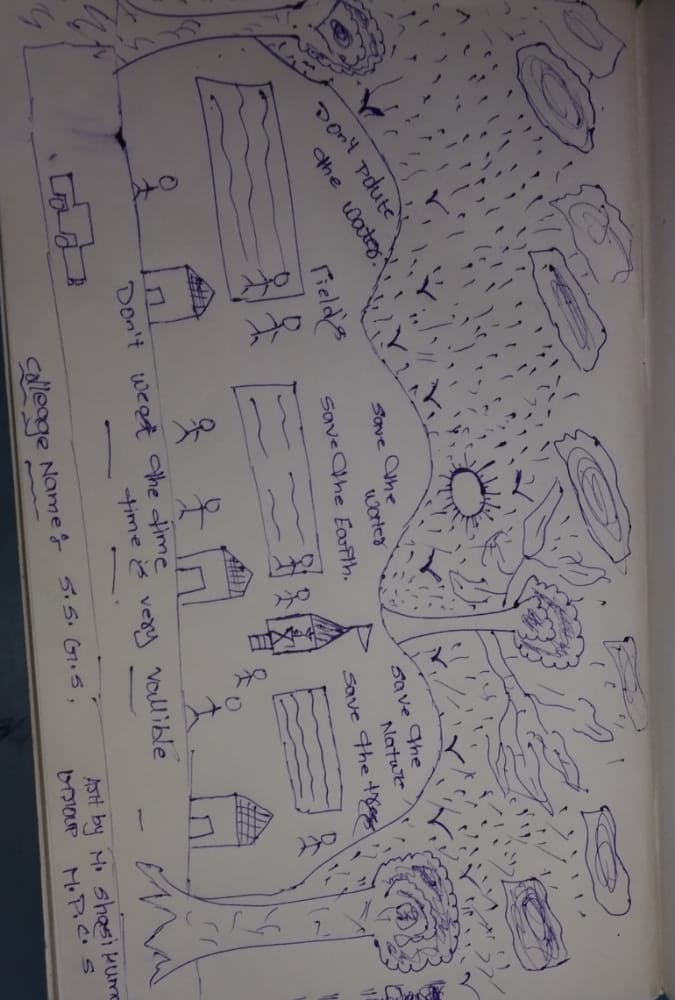 Don't Polute
the water.
Save the
Water
Save the
Nature
Field's
Save the Earth.
Save the trees
Don't weast the time
time is very vallible
Colleage Name:- S.S.G.S,
Art by M. Shasi kuma
Group M.P.C.S